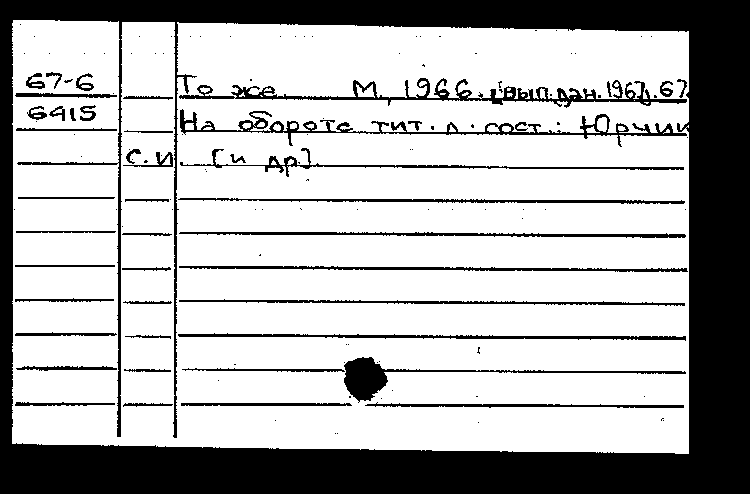 67-6 То же. М., 1966. [вып. дан. 1967]. 67
6415 На обороте тит. л. сост.: Юрчик
С.И. [и др].